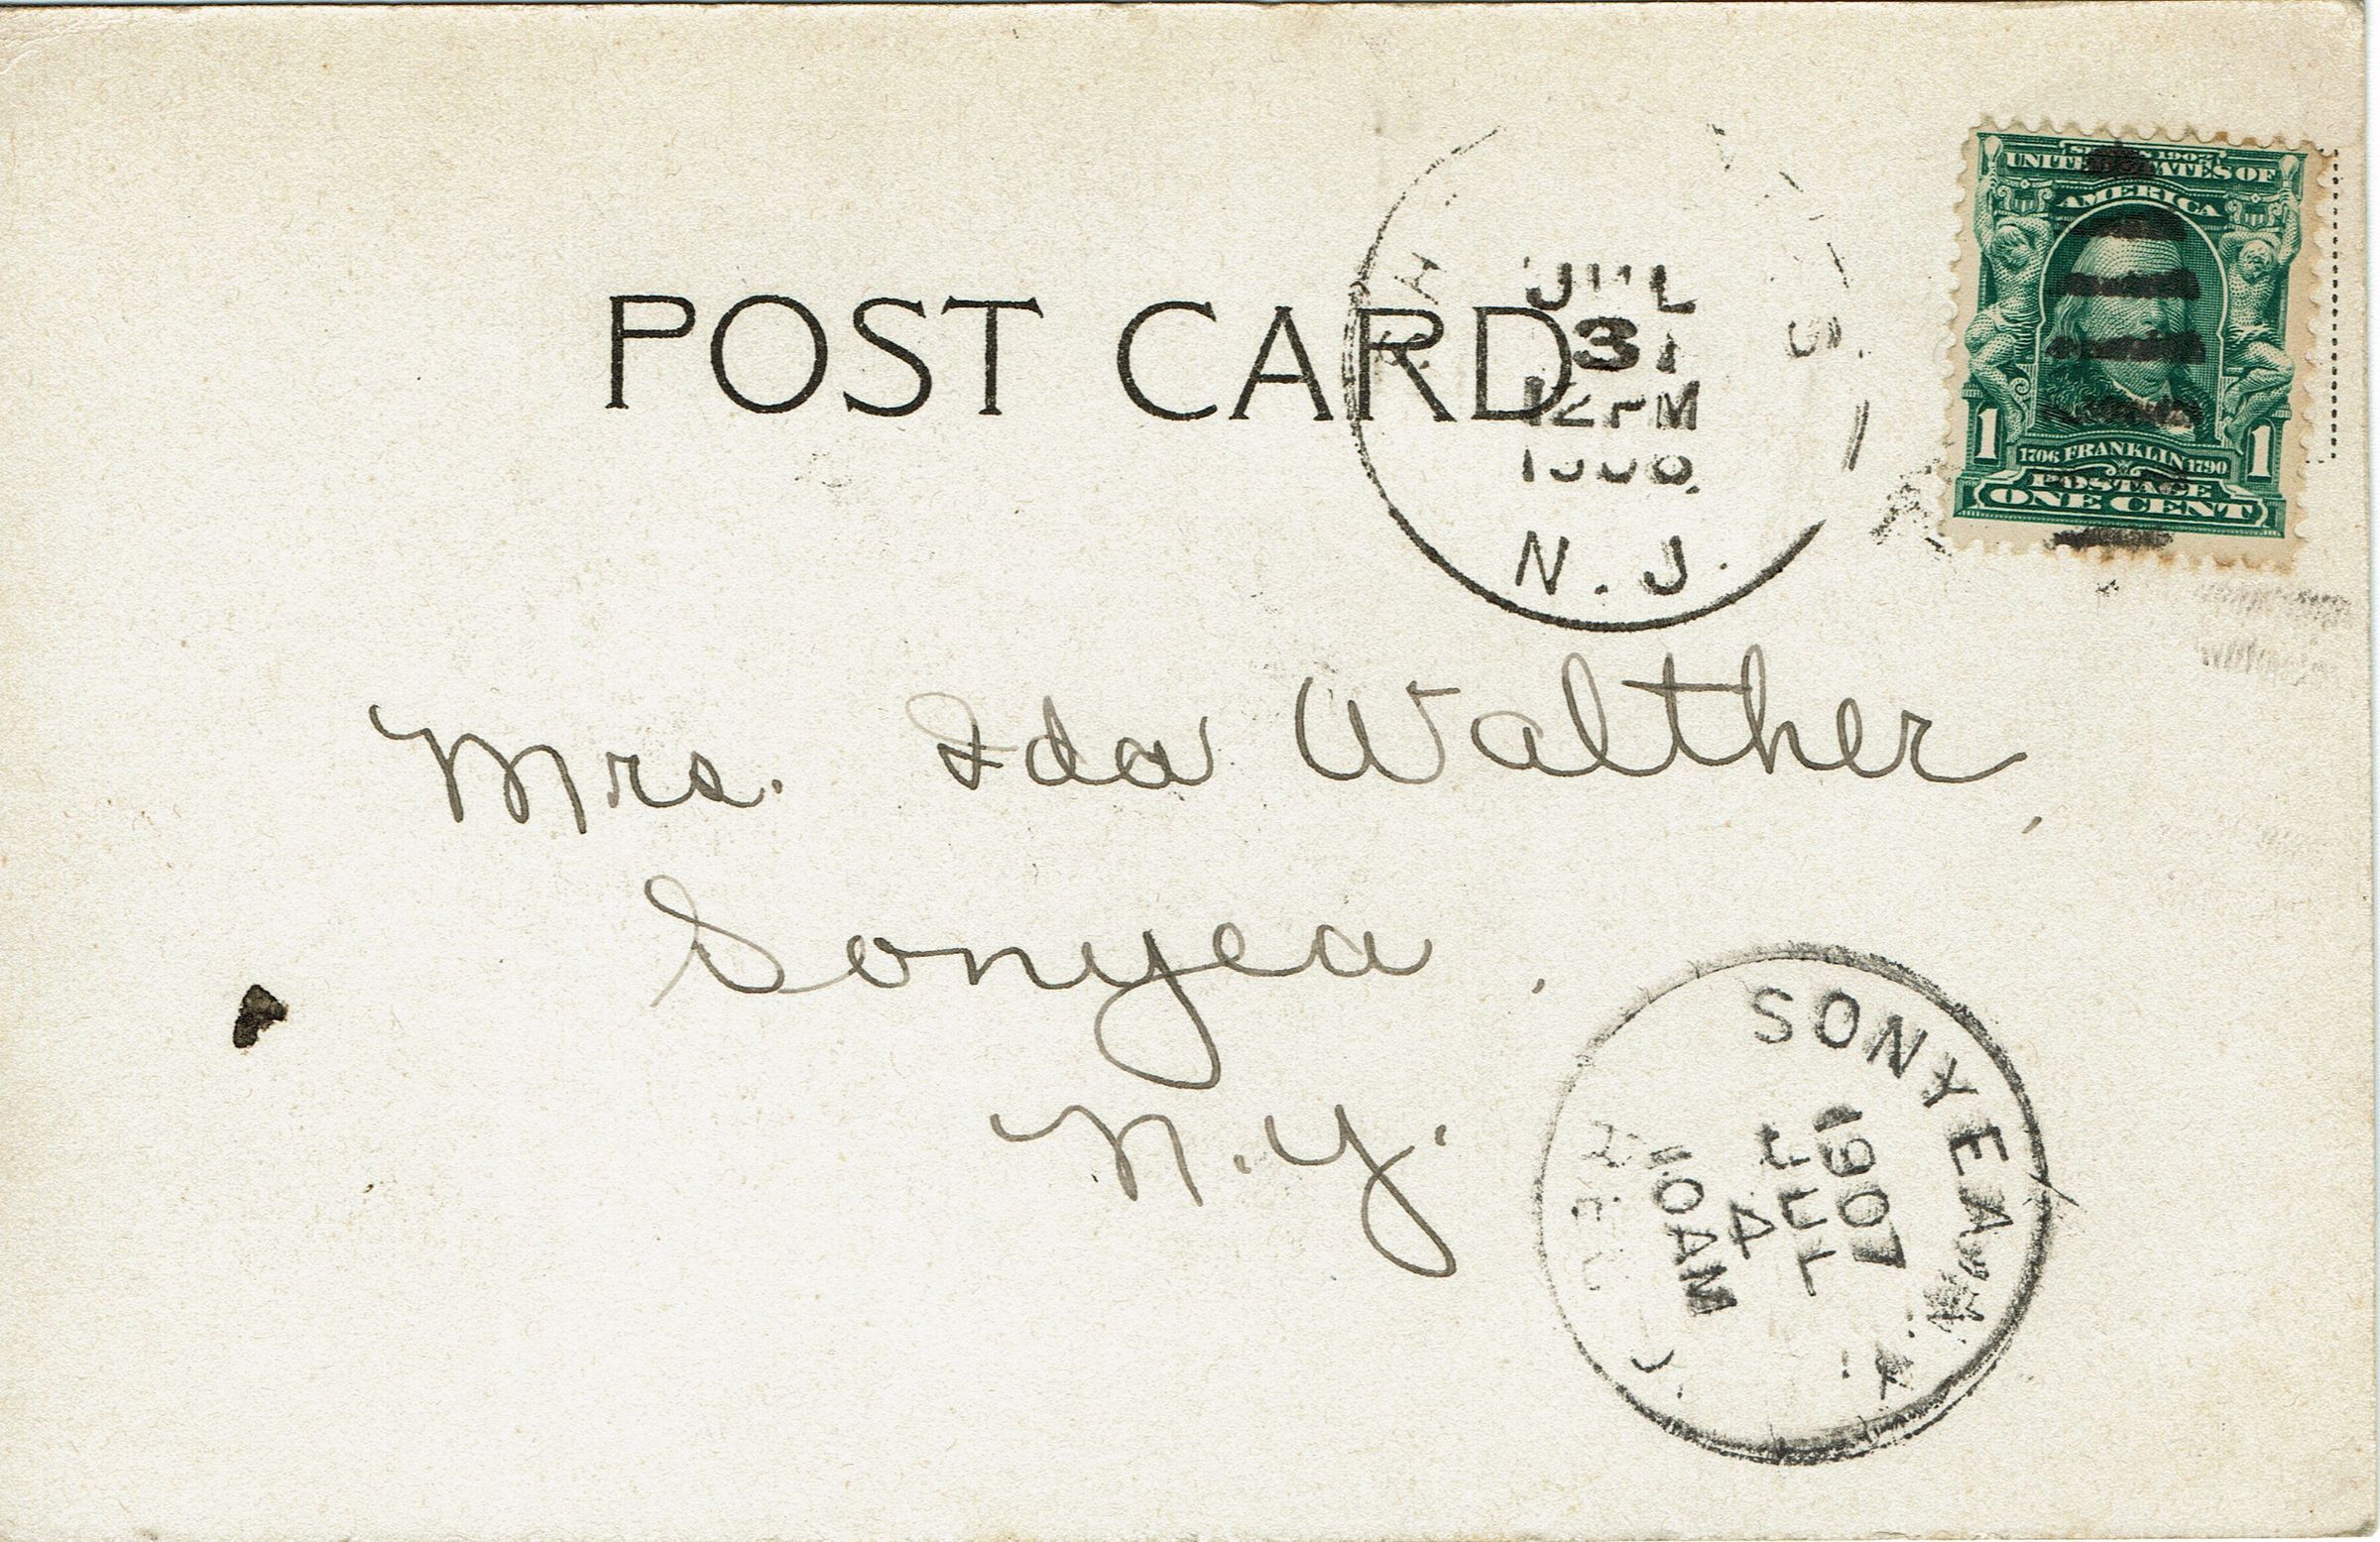 POST CARD
JUL
3
12 PM
N. J.
SERIES 1902
UNITED STATES OF
AMERICA
1 1706 FRANKLIN 1790 1
POSTAGE
ONE CENT
Mrs. Ida Walther,
Sonyea,
N.Y.
SONYEA N.Y.
1907
JUL
4
10AM
REC'D.